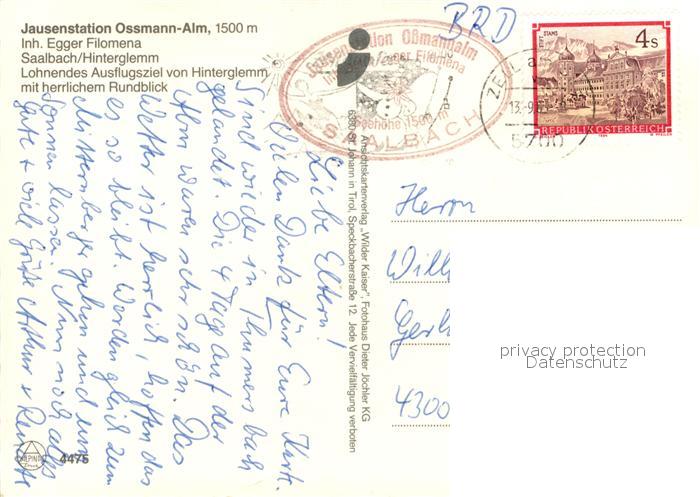 Jausenstation Ossmann-Alm, 1500 m
Inh. Egger Filomena
Saalbach/Hinterglemm
Lohnendes Ausflugsziel von Hinterglemm
mit herrlichem Rundblick
Jausenstation Oßmannalm
Egger Filomena
Seehöhe 1500 m
SAALBACH
BRD
STIFT STAMS
4 S
REPUBLIK ÖSTERREICH
ZELL a
13.-9
5700
Liebe Eltern!
Vielen Dank für Eure Karte.
Sind wieder in Thumersbach
gelandet. Die 4 Tage auf der
Alm waren sehr schön. Das
Wetter ist herrlich, hoffen das
es so bleibt. Werden gleich zum
Mitterberger gehen und uns
Sonnen lassen. Nun noch alles
gute + viele Grüße Arthur + Renate
Ansichtskartenverlag „Wilder Kaiser“, Fotohaus Dieter Jöchler KG
6380 St. Johann in Tirol, Speckbacherstraße 12. Jede Vervielfältigung verboten
Herrn
Will
Gerh
4300
privacy protection
Datenschutz
ALPIN
4475